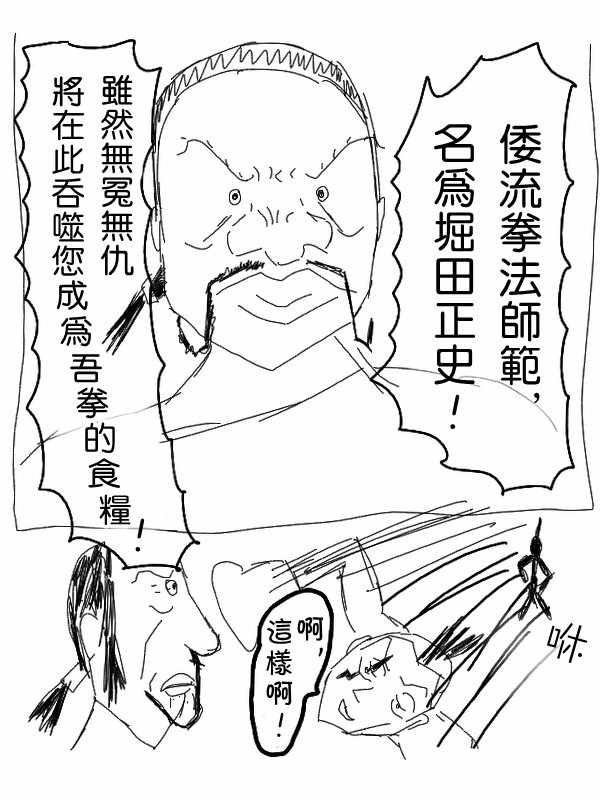 倭流拳法師範，
名爲堀田正史！
雖然無冤無仇
將在此吞噬您成爲吾拳的食糧！
啊，
這樣啊！
咻.